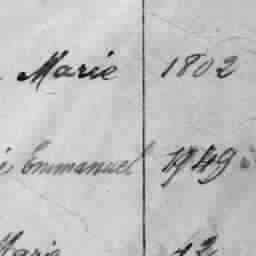 Marie 1802
Emmanuel 1949
Marie 12